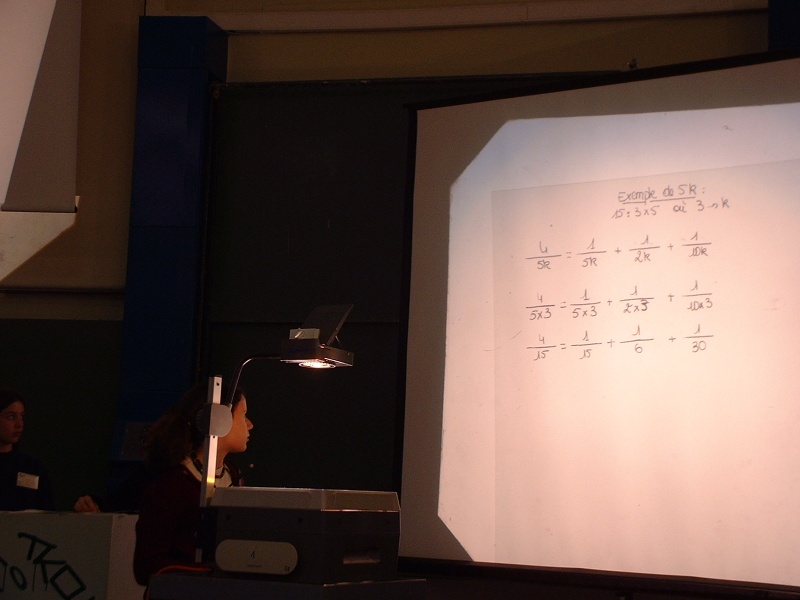 Exemple de 5k :
15 = 3 x 5 où 3 → k
4/5k = 1/5k + 1/2k + 1/10k
4/5x3 = 1/5x3 + 1/2x3 + 1/10x3
4/15 = 1/15 + 1/6 + 1/30